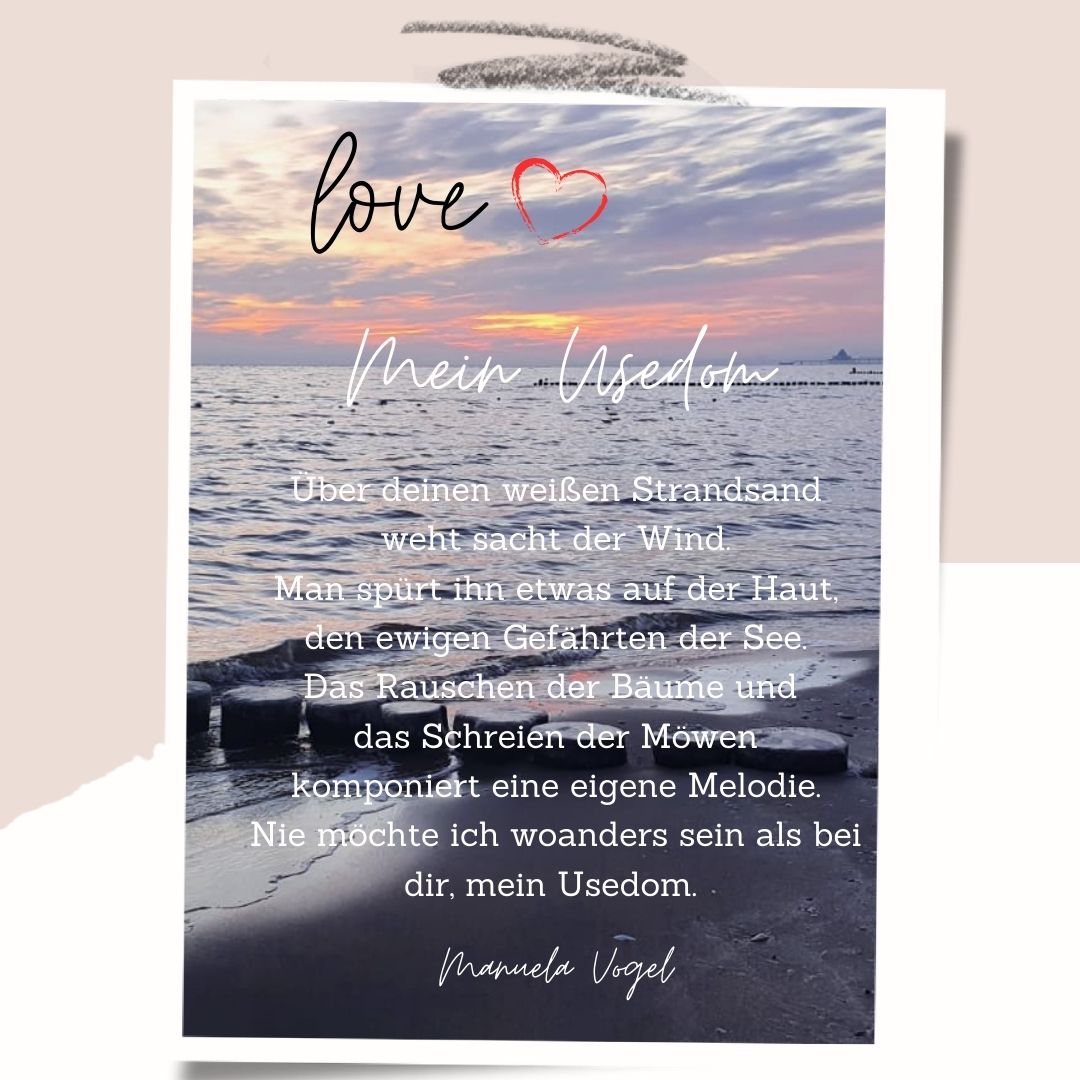 love
Mein Usedom
Über deinen weißen Strandsand
weht sacht der Wind.
Man spürt ihn etwas auf der Haut,
den ewigen Gefährten der See.
Das Rauschen der Bäume und
das Schreien der Möwen
komponiert eine eigene Melodie.
Nie möchte ich woanders sein als bei
dir, mein Usedom.
Manuela Vogel